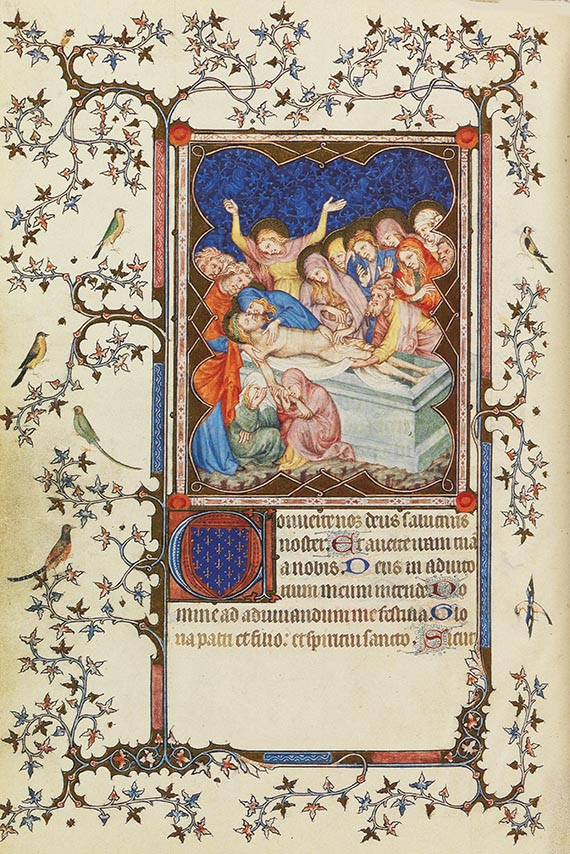 Conuerte nos deus salutaris
noster. Et auerte iram tuā
a nobis. Deus in adiuto
rium meum intende. Do
mine ad adiuuandum me festina. Glo
ria patri et filio: et spiritui sancto. Sicut